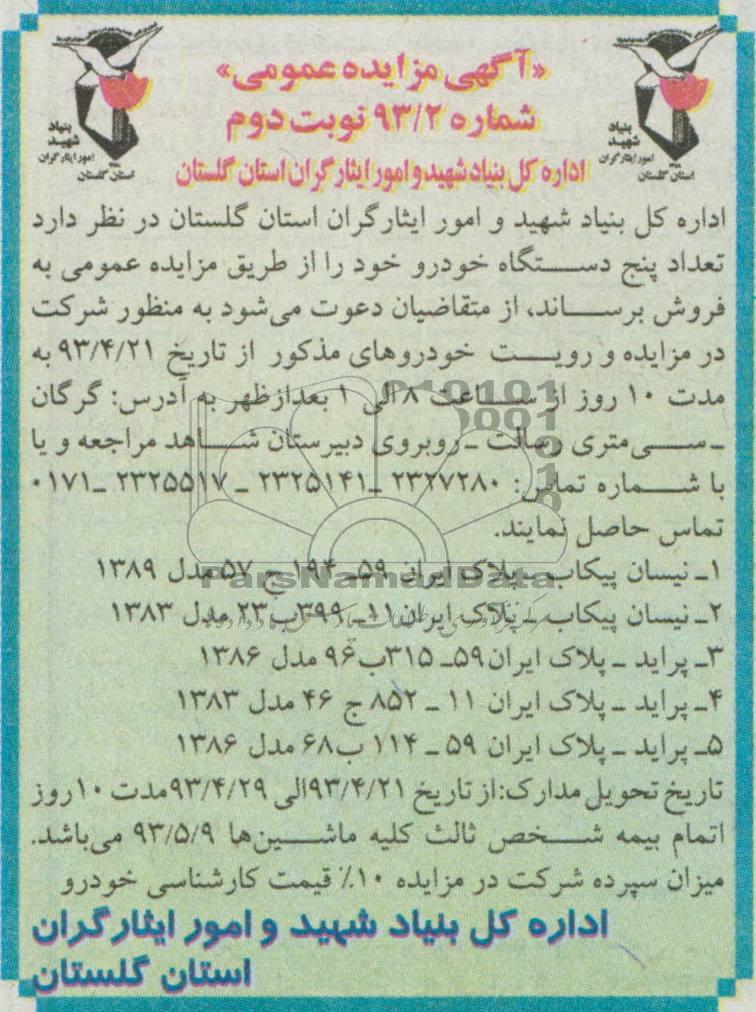 «آگهی مزایده عمومی»
شماره ۹۳/۲ نوبت دوم
اداره کل بنیاد شهید و امور ایثارگران استان گلستان
بنیاد
شهید
امور ایثارگران
استان گلستان
بنیاد
شهید
امور ایثارگران
استان گلستان
اداره کل بنیاد شهید و امور ایثارگران استان گلستان در نظر دارد
تعداد پنج دستگاه خودرو خود را از طریق مزایده عمومی به
فروش برساند، از متقاضیان دعوت می‌شود به منظور شرکت
در مزایده و رویت خودروهای مذکور از تاریخ ۹۳/۴/۲۱ به
مدت ۱۰ روز از ساعت ۸ الی ۱ بعدازظهر به آدرس: گرگان
ـ سی متری رسالت ـ روبروی دبیرستان شاهد مراجعه و یا
با شماره تماس: ۲۳۲۷۲۸۰ ـ ۲۳۲۵۱۴۱ ـ ۲۳۲۵۵۱۷ ـ ۰۱۷۱
تماس حاصل نمایند.
۱ـ نیسان پیکاب ـ پلاک ایران ۵۹ـ ۱۹۴ ج ۵۷ مدل ۱۳۸۹
۲ـ نیسان پیکاب ـ پلاک ایران ۱۱ـ ۳۹۹ب ۲۳ مدل ۱۳۸۳
۳ـ پراید ـ پلاک ایران ۵۹ـ ۳۱۵ب ۹۶ مدل ۱۳۸۶
۴ـ پراید ـ پلاک ایران ۱۱ ـ ۸۵۲ ج ۴۶ مدل ۱۳۸۳
۵ـ پراید ـ پلاک ایران ۵۹ ـ ۱۱۴ ب۶۸ مدل ۱۳۸۶
تاریخ تحویل مدارک: از تاریخ ۹۳/۴/۲۱ الی ۹۳/۴/۲۹ مدت ۱۰ روز
اتمام بیمه شخص ثالث کلیه ماشین‌ها ۹۳/۵/۹ می‌باشد.
میزان سپرده شرکت در مزایده ۱۰٪ قیمت کارشناسی خودرو
اداره کل بنیاد شهید و امور ایثارگران
استان گلستان
ParsNamadData